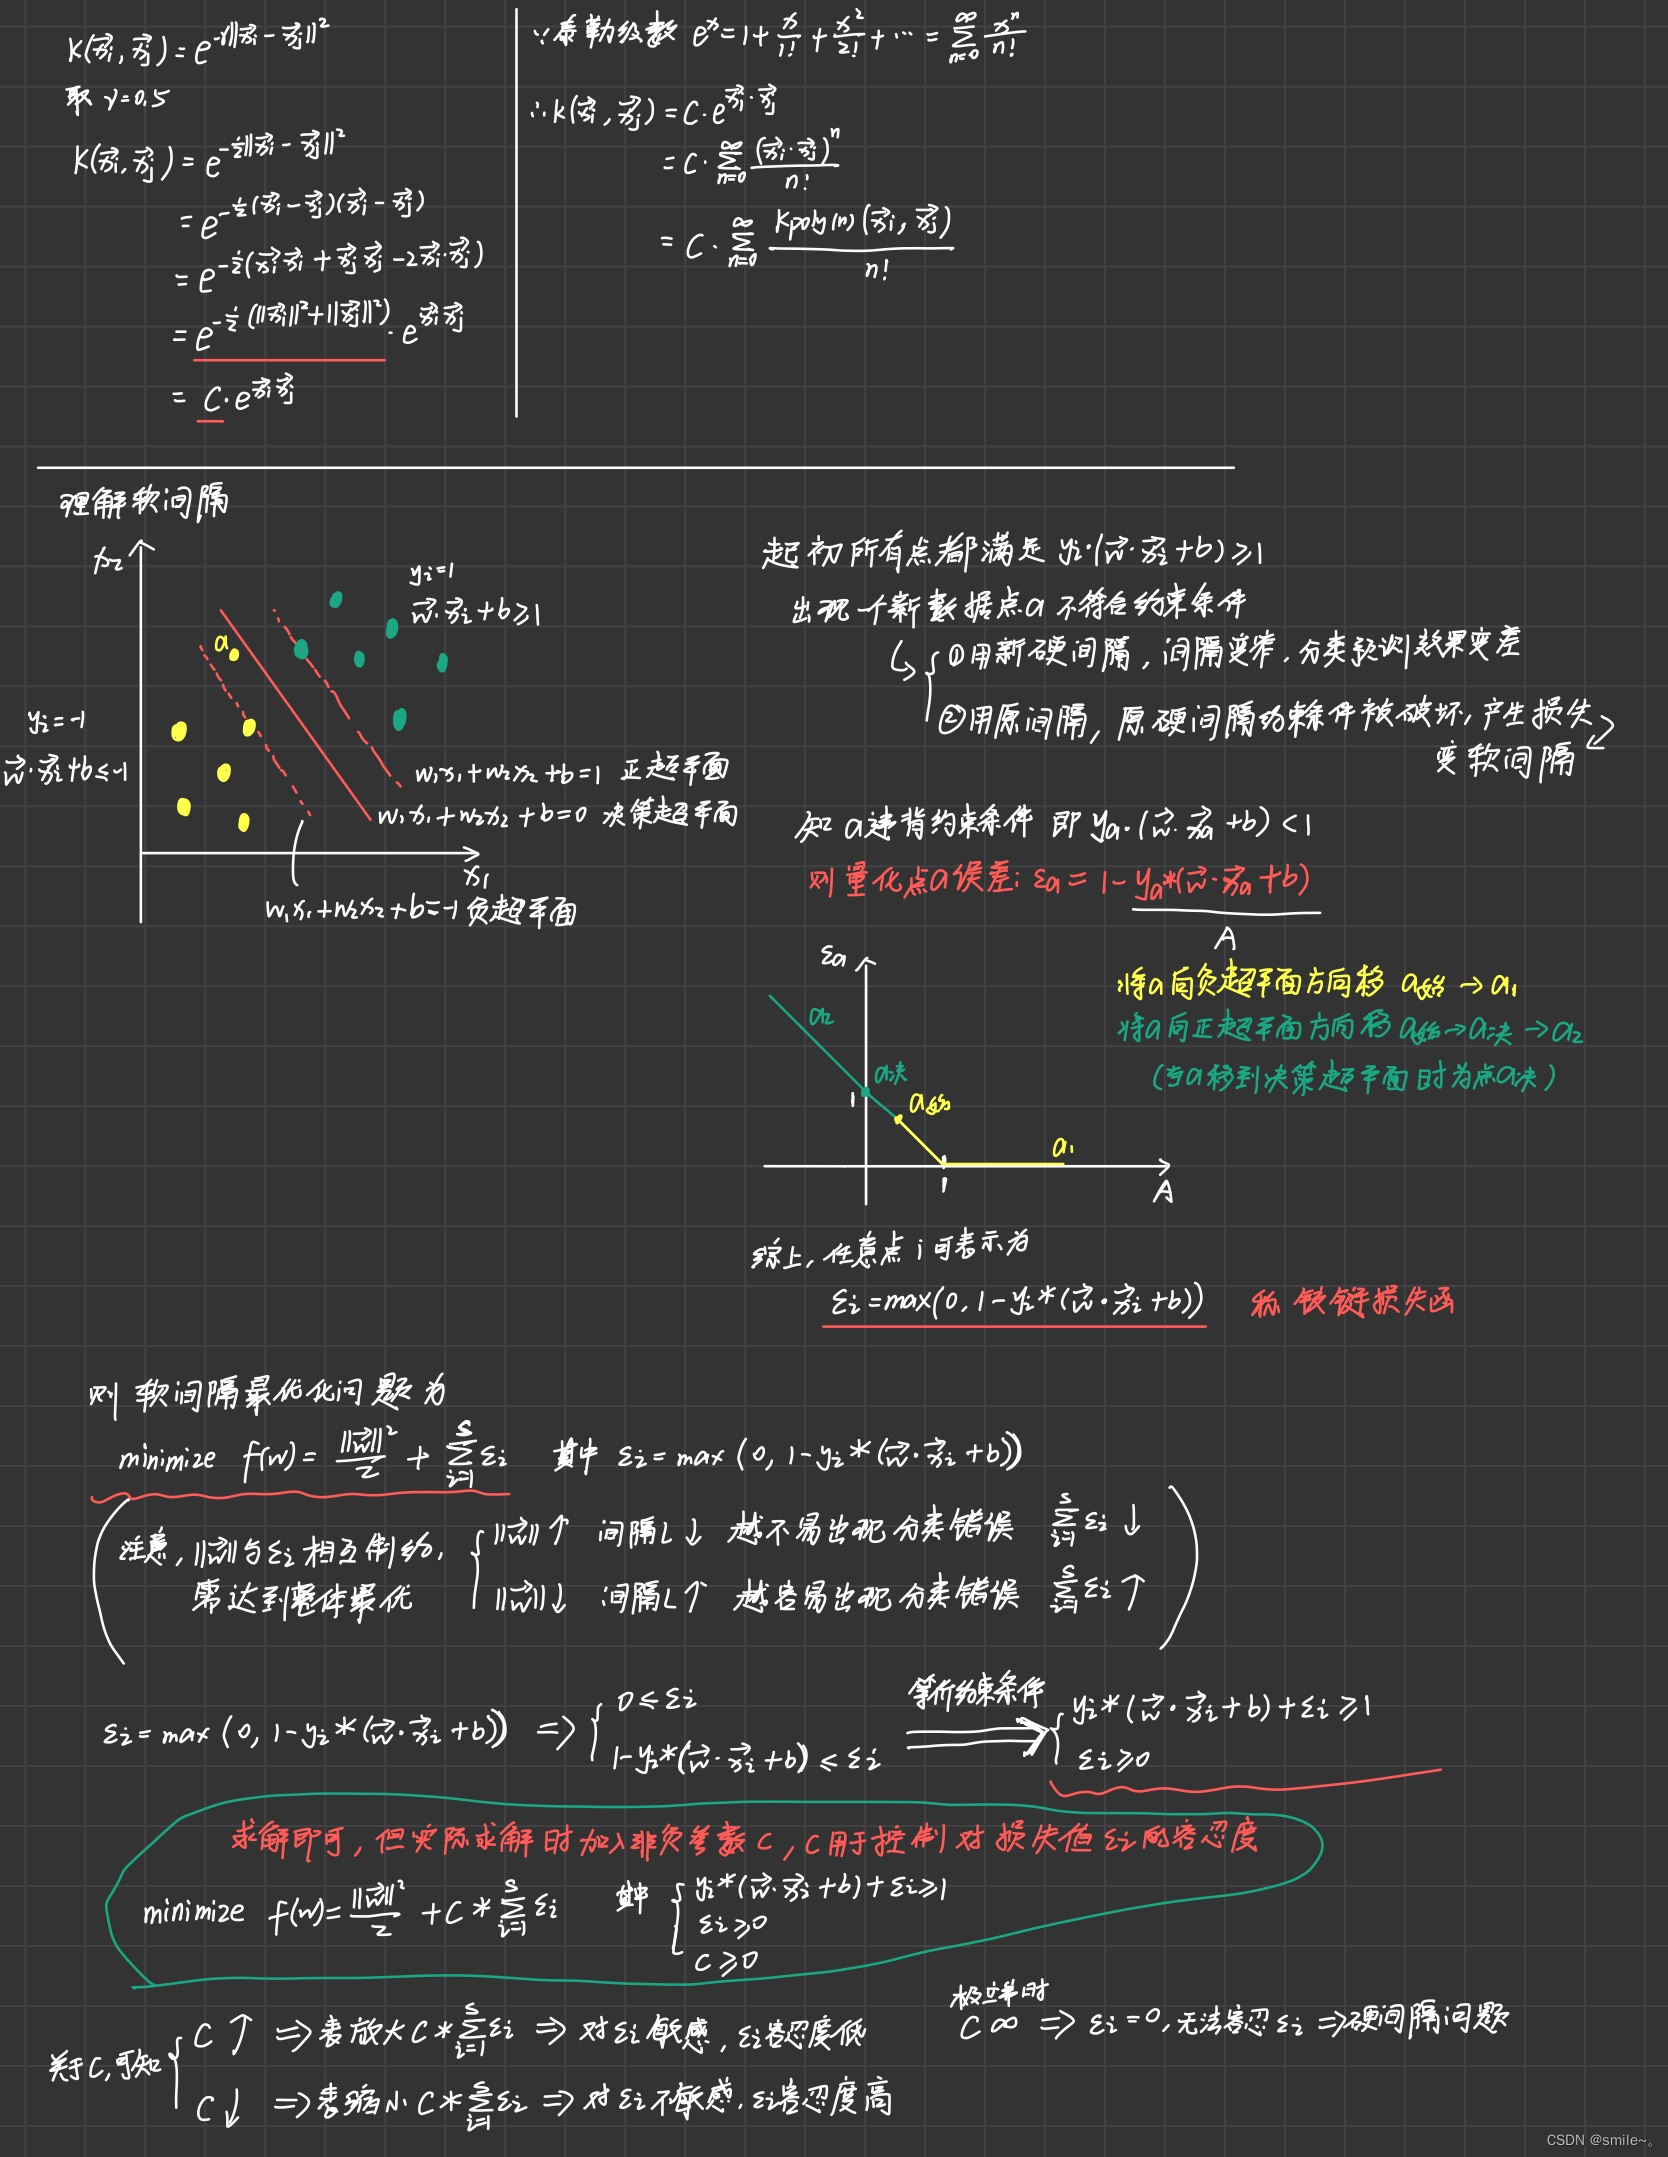 K(x⃗i, x⃗j) = e^{-γ||x⃗i - x⃗j||²}
取 γ=0.5
K(x⃗i, x⃗j) = e^{-½||x⃗i - x⃗j||²}
= e^{-½(x⃗i - x⃗j)(x⃗i - x⃗j)}
= e^{-½(x⃗i x⃗i + x⃗j x⃗j - 2x⃗i·x⃗j)}
= e^{-½(||x⃗i||²+||x⃗j||²)} · e^{x⃗i x⃗j}
= C·e^{x⃗i x⃗j}
∵泰勒级数 e^x = 1 + x/1! + x²/2! + ⋯ = ∑_{n=0}^{∞} x^n/n!
∴k(x⃗i, x⃗j) = C·e^{x⃗i·x⃗j}
= C·∑_{n=0}^{∞} (x⃗i·x⃗j)^n/n!
= C·∑_{n=0}^{∞} Kpoly(n)(x⃗i, x⃗j)/n!
理解软间隔
x₂
yi=1
w⃗·x⃗i+b≥1
a
yi=-1
w⃗·x⃗i+b≤-1
w₁x₁+w₂x₂+b=1 正超平面
w₁x₁+w₂x₂+b=0 决策超平面
x₁
w₁x₁+w₂x₂+b=-1 负超平面
起初所有点都满足 yi·(w⃗·x⃗i+b)≥1
出现一个新数据点a 不符合约束条件
①用新硬间隔,间隔变窄,分类预测效果变差
②用原间隔,原硬间隔约束条件被破坏,产生损失
变软间隔
知 a违背约束条件 即 ya·(w⃗·x⃗a+b)<1
则量化点a误差: εa = 1-ya*(w⃗·x⃗a+b)
A
εa
a₂
a决
1
a始
a₁
1
A
将a向负超平面方向移 a始→a₁
将a向正超平面方向移 a始→a决→a₂
(当a移到决策超平面时为点a决)
综上,任意点i可表示为
εi=max(0, 1-yi*(w⃗·x⃗i+b)) 称 铰链损失函
则 软间隔最优化问题为
minimize f(w) = ||w⃗||²/2 + ∑_{i=1}^{s} εi 其中 εi = max(0, 1-yi*(w⃗·x⃗i+b))
注意,||w⃗||与εi相互制约,
需达到整体最优
||w⃗||↑ 间隔L↓ 越不易出现分类错误 ∑_{i=1}^{s} εi↓
||w⃗||↓ 间隔L↑ 越容易出现分类错误 ∑_{i=1}^{s} εi↑
εi = max(0, 1-yi*(w⃗·x⃗i+b)) ⇒ { 0≤εi
1-yi*(w⃗·x⃗i+b)≤εi
等价约束条件
yi*(w⃗·x⃗i+b)+εi≥1
εi≥0
求解即可,但实际求解时加入非负参数C,C用于控制对损失值εi的容忍度
minimize f(w) = ||w⃗||²/2 + C*∑_{i=1}^{s} εi 其中 { yi*(w⃗·x⃗i+b)+εi≥1
εi≥0
C≥0
关于C,可知
C↑ ⇒表放大C*∑_{i=1}^{s} εi ⇒ 对εi敏感,εi容忍度低
C↓ ⇒表缩小C*∑_{i=1}^{s} εi ⇒ 对εi不敏感,εi容忍度高
极端时
C∞ ⇒ εi=0,无法容忍εi ⇒硬间隔问题
CSDN @smile~。